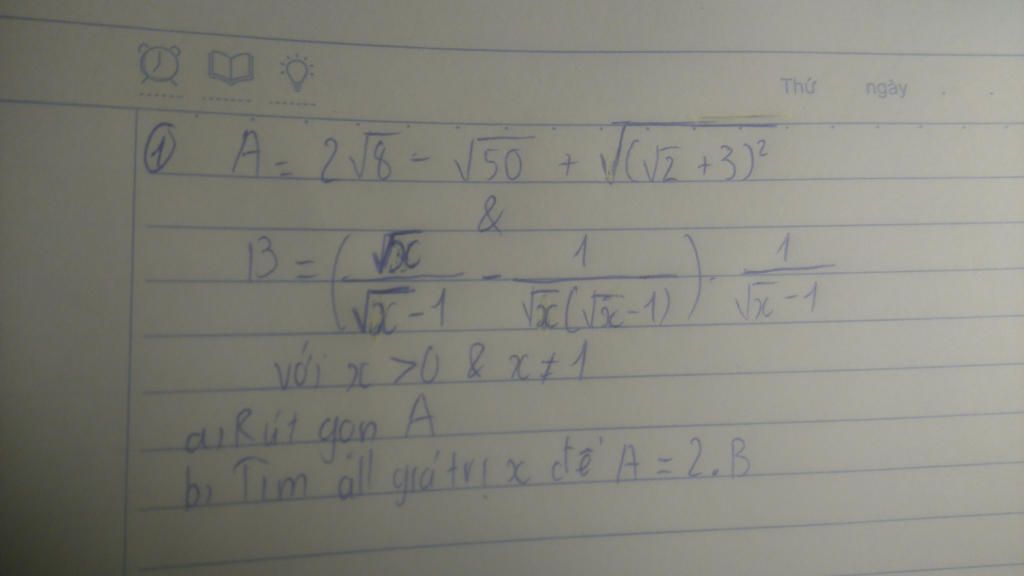 Thứ ngày
① A = 2√8 - √50 + √((√2 + 3)²)
&
B = (√x/(√x - 1) - 1/(√x(√x - 1))) . 1/(√x - 1)
với x > 0 & x ≠ 1
a, Rút gọn A
b, Tìm all giá trị x để A = 2.B